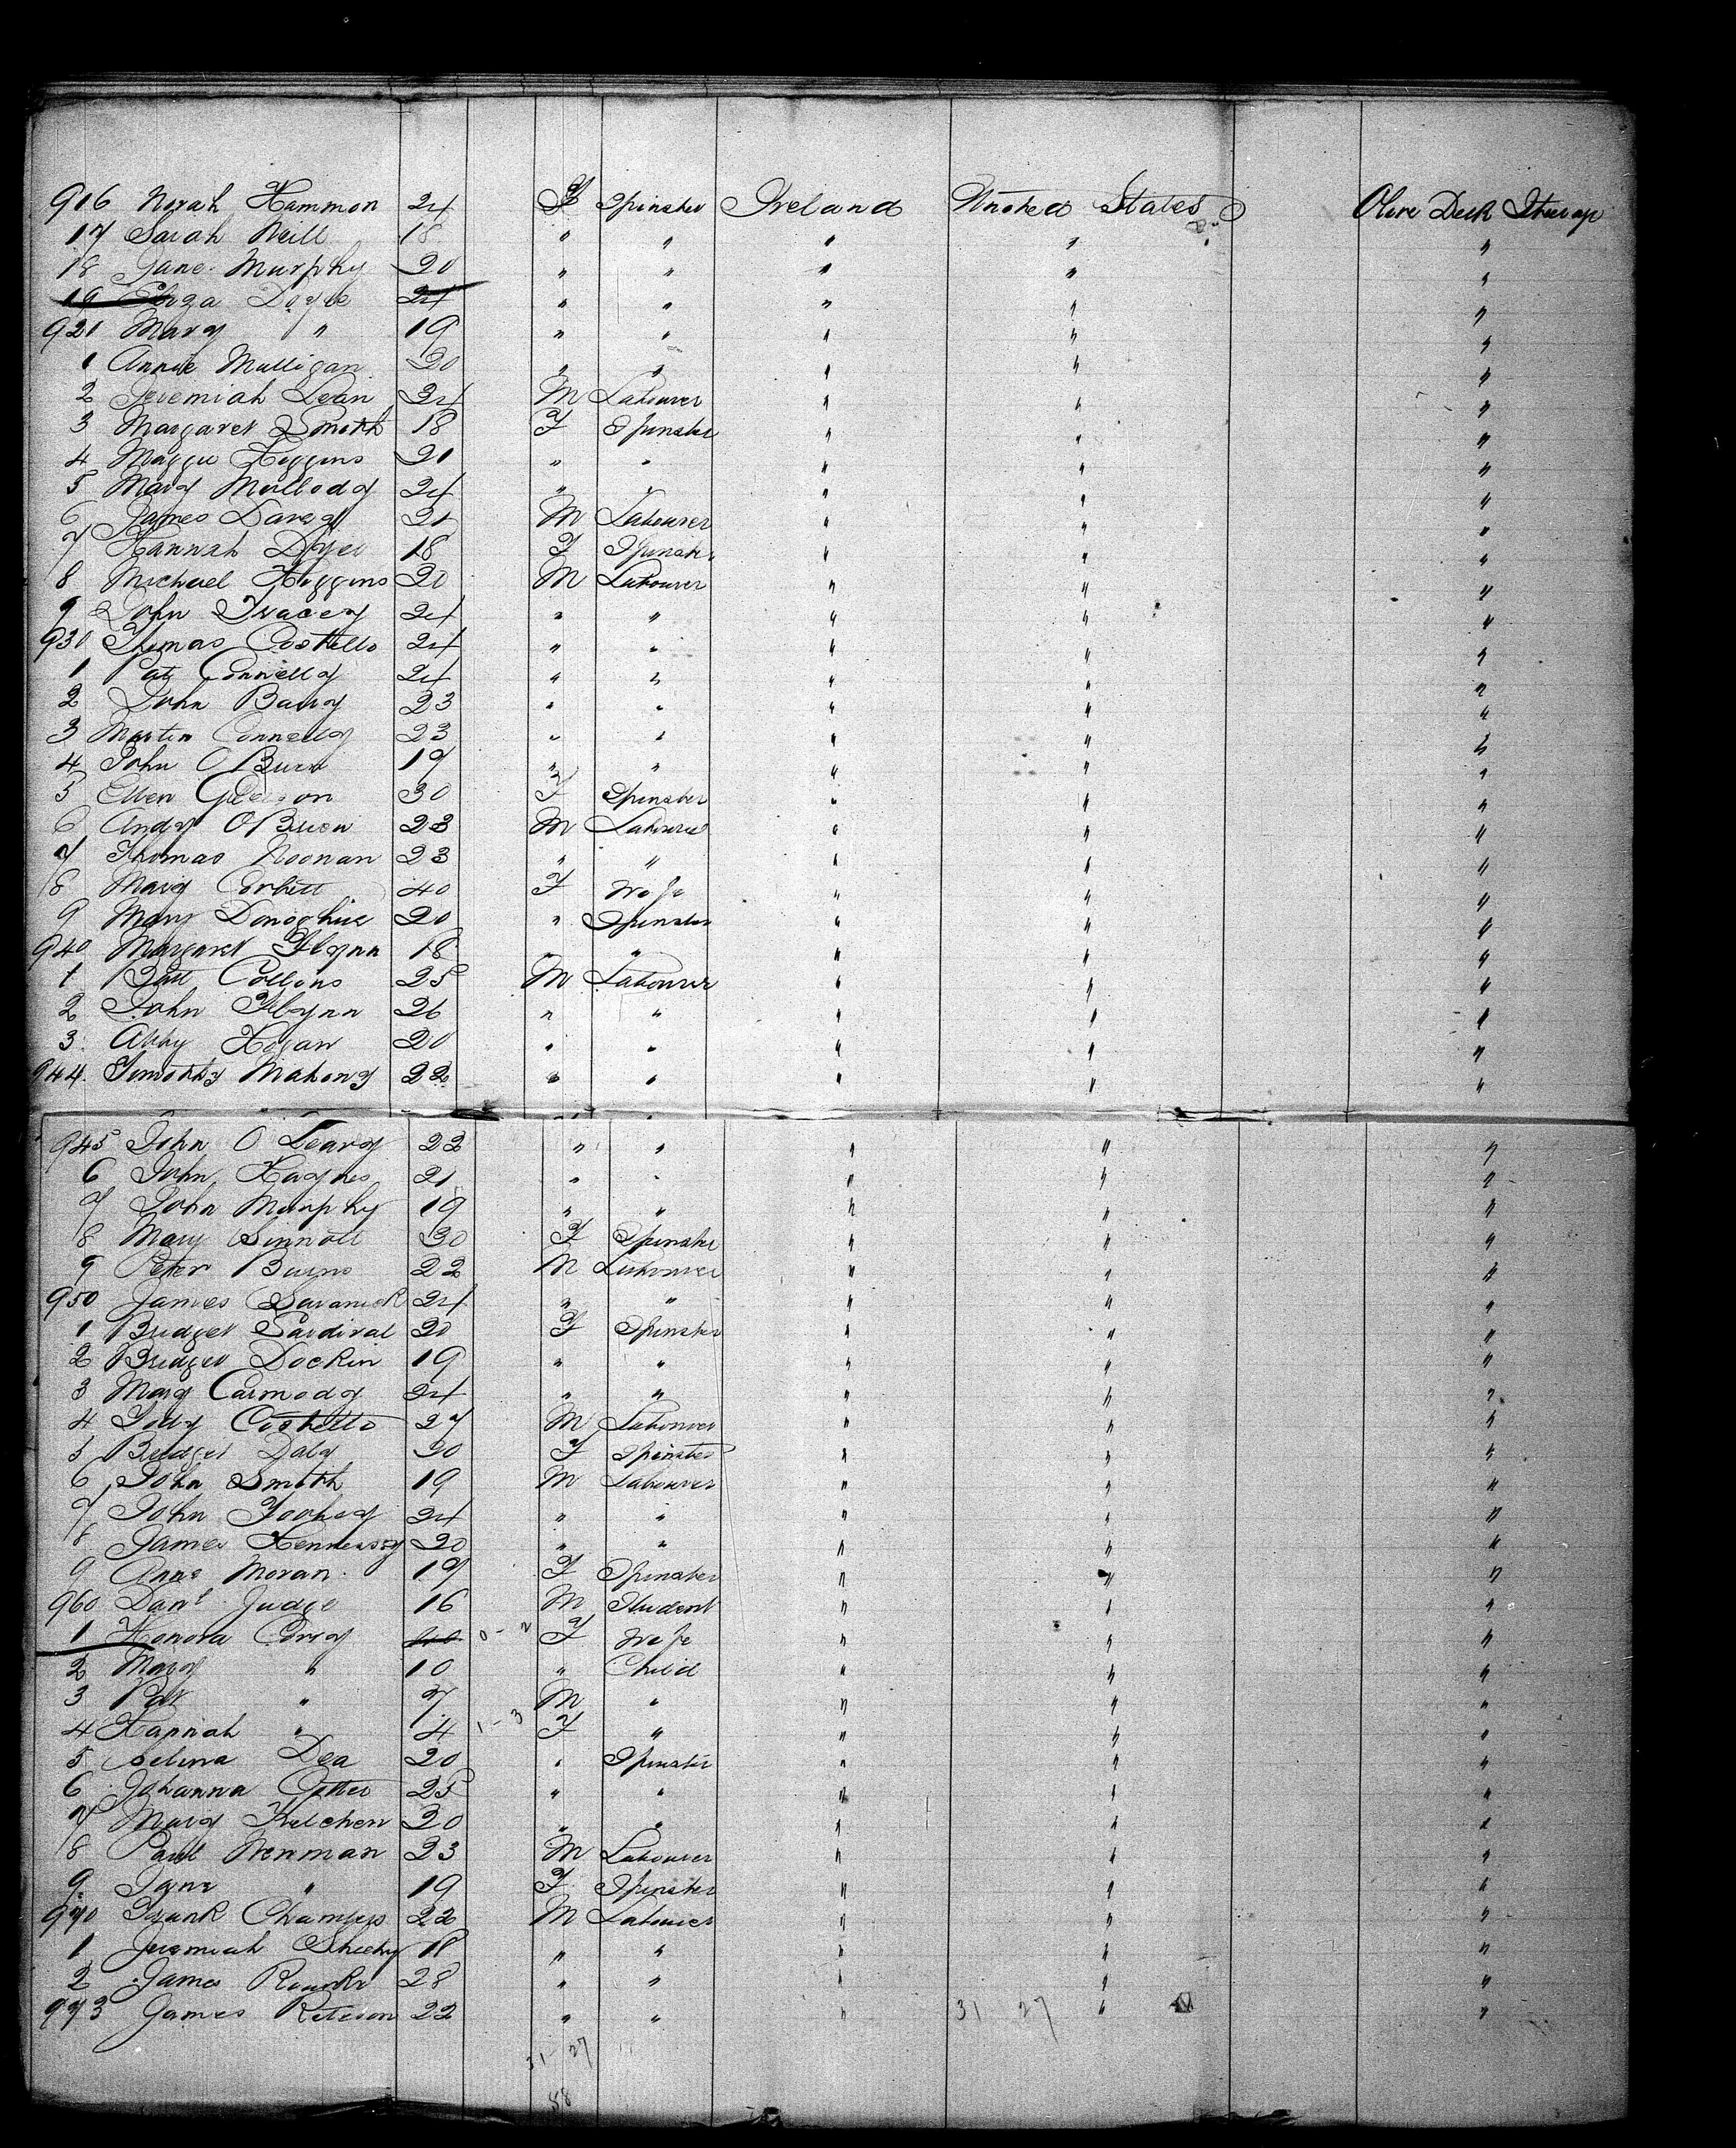 916 Norah Hammon 24 F Spinster Ireland United States Olove Deck Steerage
17 Sarah Neill 18 " " " " "
18 Jane Murphy 20 " " " " "
19 Eliza Doyle 24 " " " " "
920 Mary " 19 " " " " "
1 Annie Mulligan 20 " " " " "
2 Jeremiah Lean 24 M Labourer " " "
3 Margaret Smith 18 F Spinster " " "
4 Maggie Higgins 20 " " " " "
5 Mary Mullody 24 " " " " "
6 James Davey 21 M Labourer " " "
7 Hannah Dyer 18 F Spinster " " "
8 Michael Higgins 20 M Labourer " " "
9 John Tracey 24 " " " " "
930 Thomas Costello 24 " " " " "
1 Pat Connelly 24 " " " " "
2 John Barry 23 " " " " "
3 Martin Connelly 23 " " " " "
4 John O 19 " " " " "
5 Ellen Gleeson 30 F Spinster " " "
6 Andy O'Brien 23 M Labourer " " "
7 Thomas Noonan 23 " " " " "
8 Mary Corbett 40 F Wife " " "
9 Mary Donoghue 20 " Spinster " " "
940 Margaret Flynn 18 " " " " "
1 Batt Collins 25 M Labourer " " "
2 John Flynn 26 " " " " "
3 Abby Hogan 20 " " " " "
944 Timothy Mahony 22 " " " " "
945 John O Leary 22 " " " " "
6 John Haynes 21 " " " " "
7 John Murphy 19 " " " " "
8 Mary Sinnott 30 F Spinster " " "
9 Peter Burns 22 M Labourer " " "
950 James 24 " " " " "
1 Bridget Sardival 20 F Spinster " " "
2 Bridget Dockin 19 " " " " "
3 Mary Carmody 24 " " " " "
4 Costello 27 M Labourer " " "
5 Bridget Daly 20 F Spinster " " "
6 John Smith 19 M Labourer " " "
7 John Toohey 24 " " " " "
8 James Hennessy 20 " " " " "
9 Anne Moran 19 F Spinster " " "
960 Danl Judge 16 M Student " " "
1 Honora Corry 40 0-2 F Wife " " "
2 Mary " 10 " Child " " "
3 Pat " 7 M " " " "
4 Hannah " 4 1-3 F " " " "
5 Selina Dea 20 " Spinster " " "
6 Johanna 25 " " " " "
7 Mary Kitchen 20 " " " " "
8 Paul Newman 23 M Labourer " " "
9 Jane " 19 F Spinster " " "
970 Frank Chambers 22 M Labourer " " "
1 Jeremiah Sheehy 18 " " " " "
2 James Rourke 28 " " " " "
973 James 22 " " " 31 27 " "
31-27
58